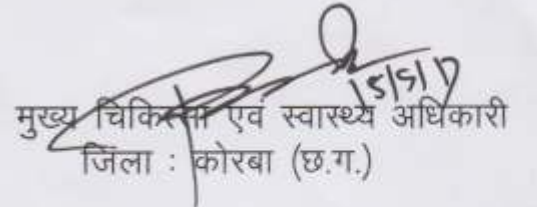 15/5/17
मुख्य चिकित्सा एवं स्वास्थ्य अधिकारी
जिला : कोरबा (छ.ग.)